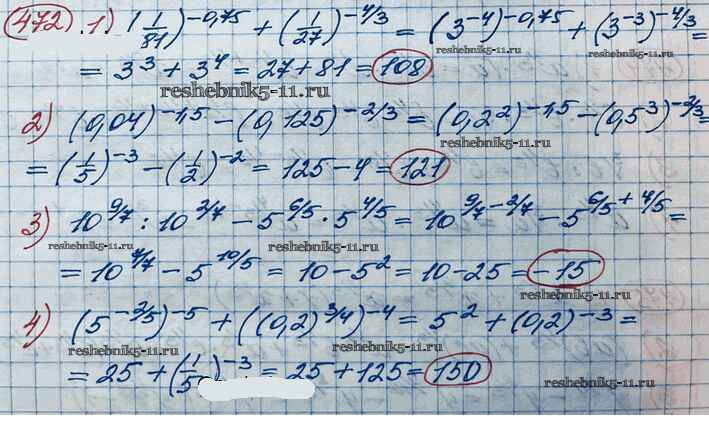 472. 1) (1/81)^-0,75 + (1/27)^-4/3 = (3^-4)^-0,75 + (3^-3)^-4/3 =
reshebnik5-11.ru reshebnik5-11.ru
= 3^3 + 3^4 = 27 + 81 = 108
reshebnik5-11.ru
2) (0,04)^-1,5 - (0,125)^-2/3 = (0,2^2)^-1,5 - (0,5^3)^-2/3 =
reshebnik5-11.ru
= (1/5)^-3 - (1/2)^-2 = 125 - 4 = 121
reshebnik5-11.ru
3) 10^9/7 : 10^2/7 - 5^6/5 · 5^4/5 = 10^9/7 - 2/7 - 5^6/5 + 4/5 =
reshebnik5-11.ru reshebnik5-11.ru reshebnik5-11.ru
= 10^7/7 - 5^10/5 = 10 - 5^2 = 10 - 25 = -15
reshebnik5-11.ru
4) (5^-2/5)^-5 + ((0,2)^3/4)^-4 = 5^2 + (0,2)^-3 =
reshebnik5-11.ru reshebnik5-11.ru
= 25 + (1/5)^-3 = 25 + 125 = 150
reshebnik5-11.ru